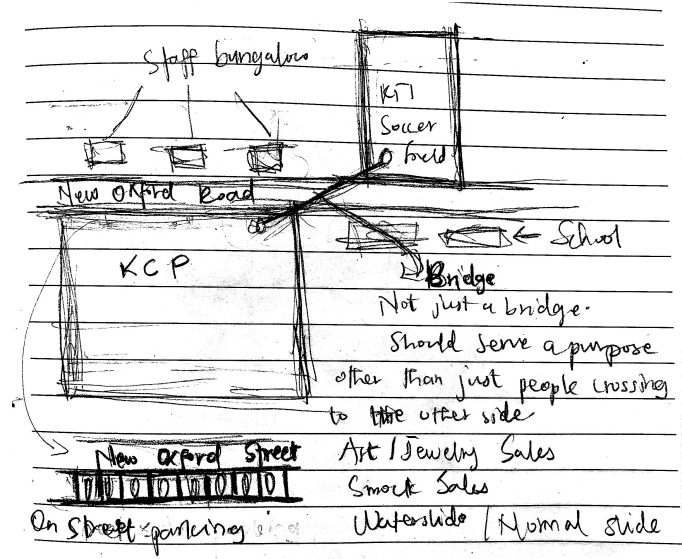 Staff bungalow
KIT
Soccer
field
New Oxford Road
KCP
School
Bridge
Not just a bridge.
Should serve a purpose
other than just people crossing
to the other side
New Oxford Street
On street parking
Art / Jewelry Sales
Smock Sales
Waterslide / Normal slide